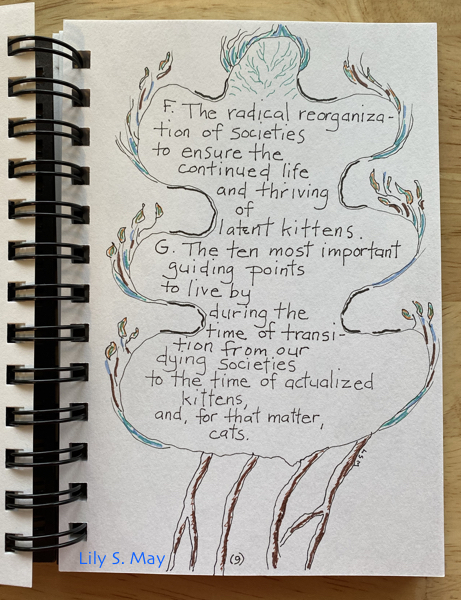 F. The radical reorganiza-
tion of societies
to ensure the
continued life
and thriving
of
latent kittens.
G. The ten most important
guiding points
to live by
during the
time of transi-
tion from our
dying societies
to the time of actualized
kittens,
and, for that matter,
cats.
Lily S. May
(9)